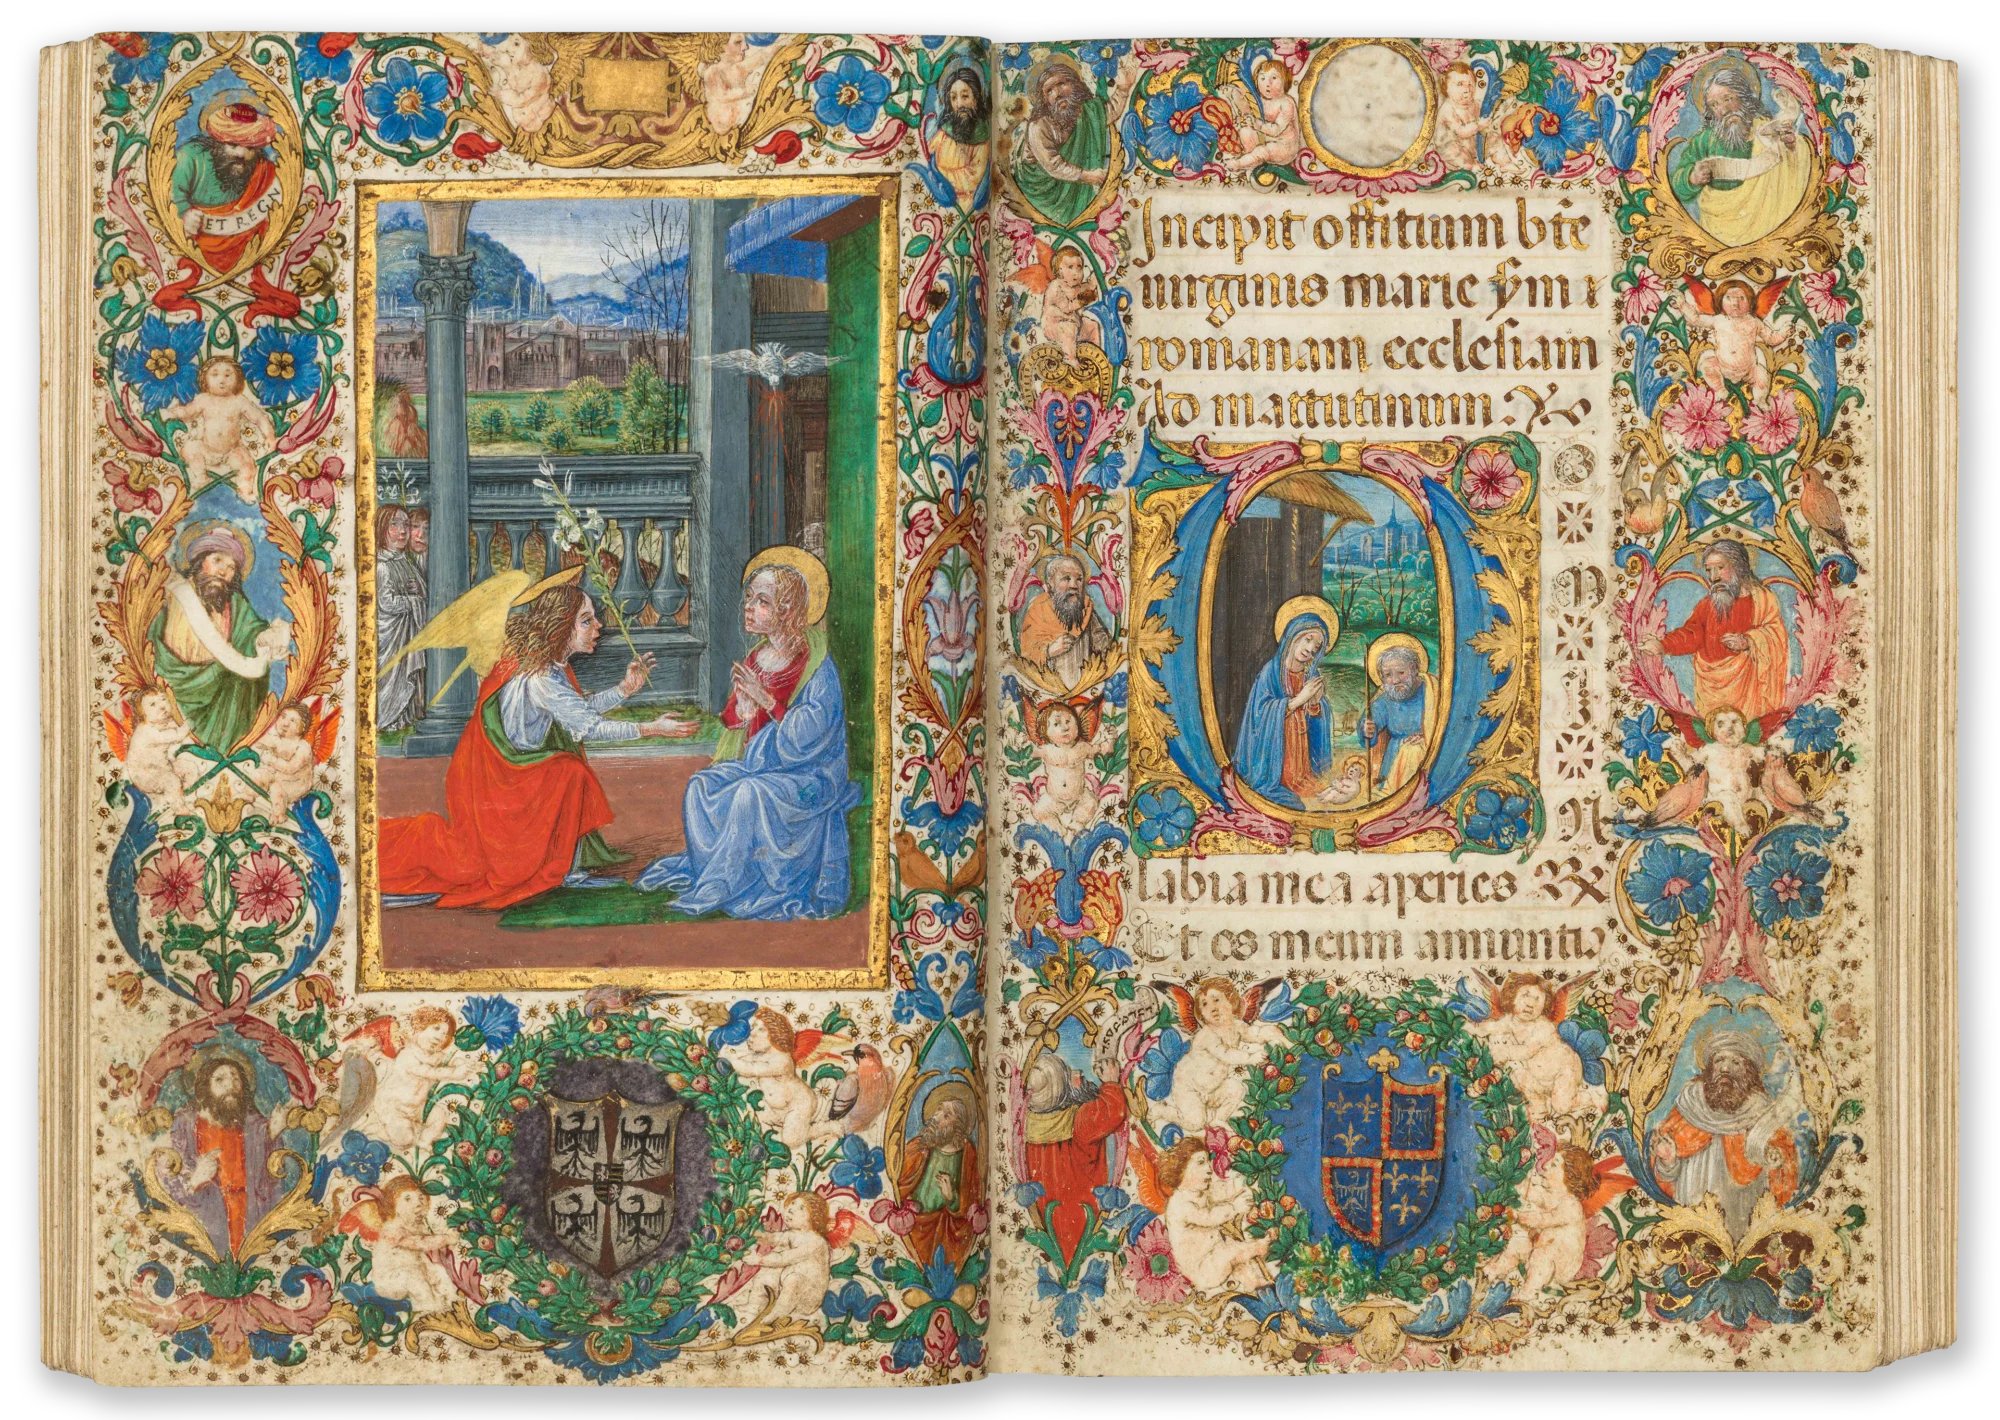 ET REGN
Incipit offitium bt̃e
uirginis marie scd̃m
romanam ecclesiam
Ad mattutinum
OMIN
labia mea aperies
Et os meum annuntia